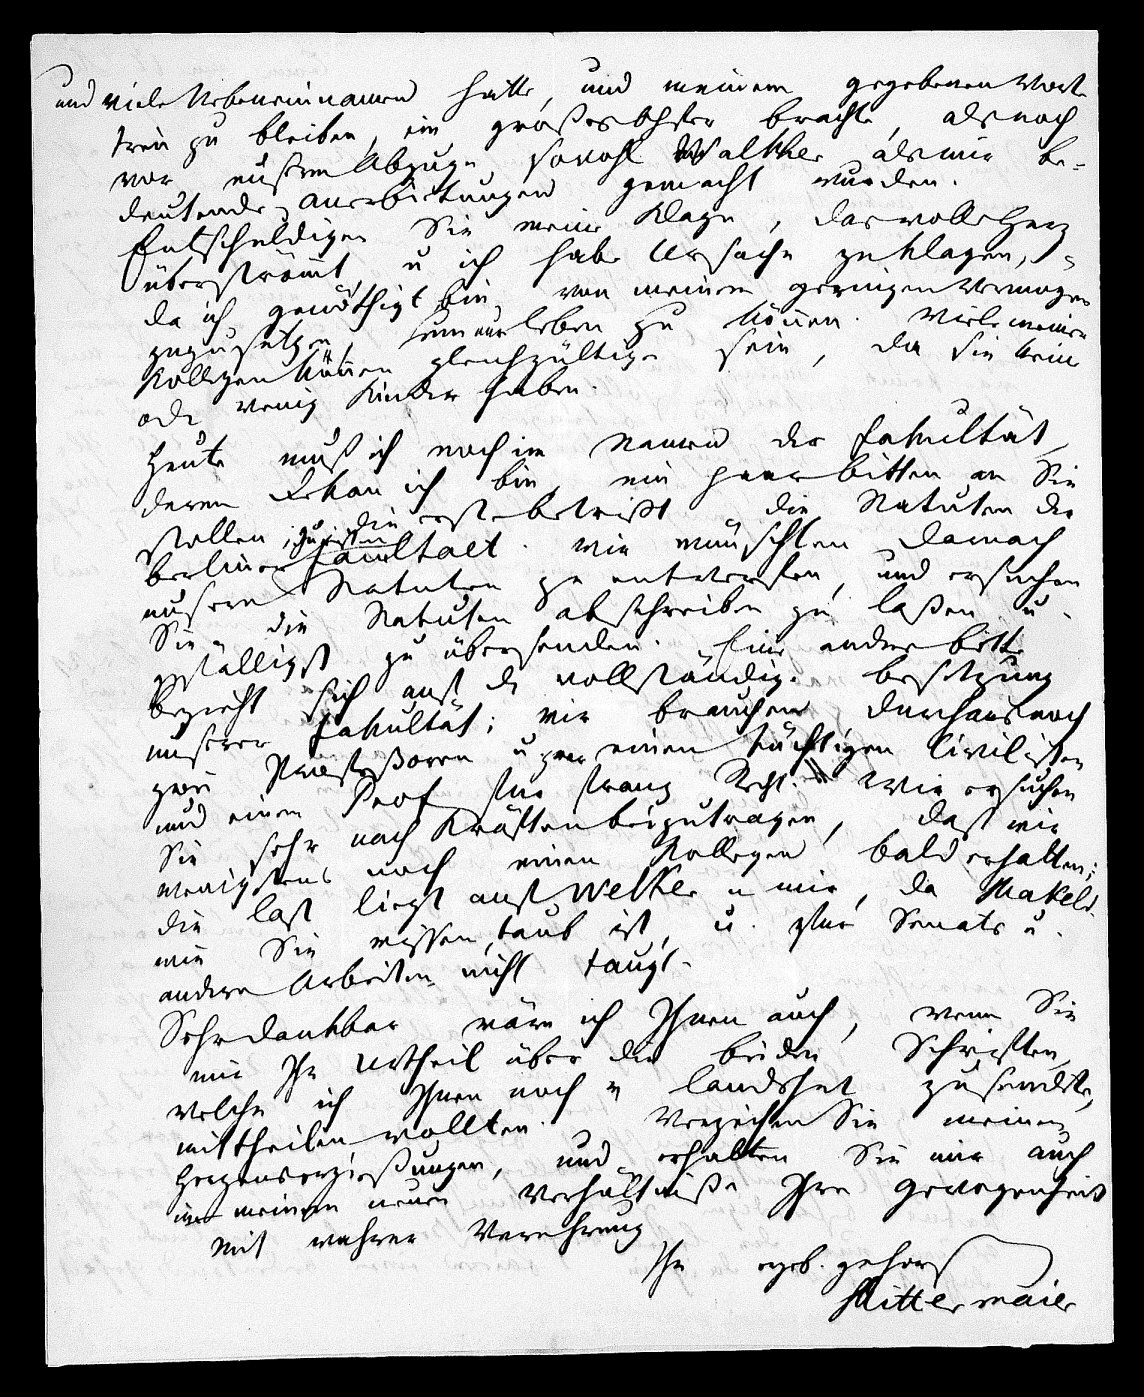 und viele Nebeneinnamen hatte, und meinem gegebenen Worte
treu zu bleiben, ein großes Opfer brachte, als noch
vor unserm Abzuge sowohl Walther als mir be-
deutende Anerbietungen gemacht wurden.
Entschuldigen Sie meine Klage, das volle Herz
überströmt, u ich habe Ursache zu klagen,
da ich genöthigt bin, von meinem geringen Vermogen
zuzusetzen, um nur leben zu können. Viele meiner
Kollegen können gleichgültiger sein, da sie keine
oder wenig Kinder haben.
Heute muß ich noch im Namen der Fakultät,
deren Dekan ich bin, ein paar bitten an Sie
stellen; die erste betrifft die Statuten der
Berliner Juristen Facultaet. Wir wünschten darnach
unsere Statuten zu entwerfen, und ersuchen
Sie die Statuten abschreiben zu laßen u.
gefälligst zu übersenden. Eine andere bitte
bezieht sich auf d vollständige besetzung
unserer Fakultät; wir brauchen durchaus noch
zwei Profeßoren u zwar einen tüchtigen Civilisten
und einen Prof für franz Recht. Wir ersuchen
Sie sehr nach Kräften beizutragen, daß wir
wenigstens noch einen Kollegen bald erhalten;
die last liegt auf Welker u mir, da Makeld.
wie Sie wissen, taub ist, u. für Senats u.
andere Arbeiten nicht taugt.
Sehr dankbar wäre ich Ihnen auch, wenn Sie
mir Ihr Urtheil über die beiden Schriften,
welche ich Ihnen noch v landshut zusendete,
mittheilen wollten. Verzeihen Sie meinen
Herzensergießungen, und erhalten Sie mir auch
in meinen neuen Verhältniße Ihre Gewogenheit
Mit wahrer Verehrung
Ihr ergeb. gehors
Mittermaier